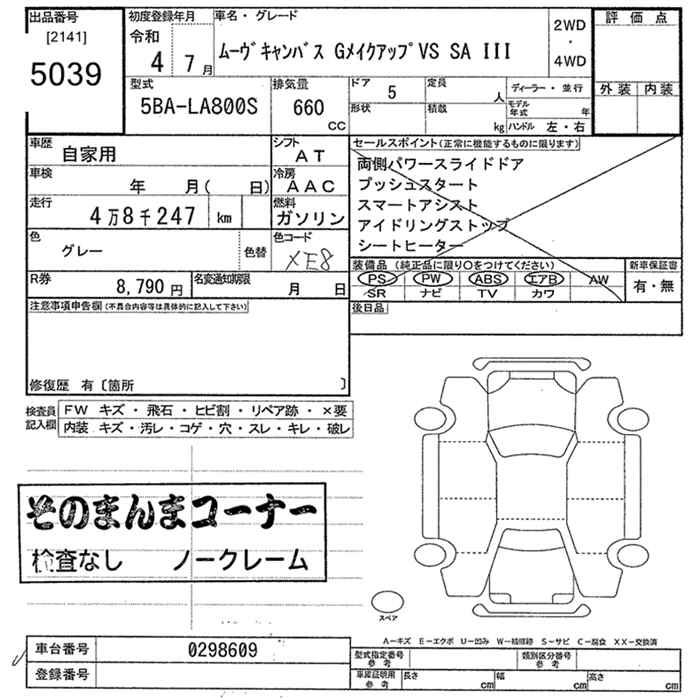 出品番号
[2141]
5039
初度登録年月
令和
4 7月
車名・グレード
ムーヴキャンバス GメイクアップVS SA III
2WD
・
4WD
評価点
外装 内装
型式
5BA-LA800S
排気量
660
CC
ドア 5
定員 人
形状
積載 kg
ディーラー・並行
モデル年式 年
ハンドル 左・右
車歴 自家用
シフト AT
車検 年 月( 日)
冷房 AAC
走行 4万8千247 km
燃料 ガソリン
色 グレー 色替
色コード XE8
R券 8,790円
名変通知期限 月 日
セールスポイント(正常に機能するものに限ります)
両側パワースライドドア
プッシュスタート
スマートアシスト
アイドリングストップ
シートヒーター
装備品(純正品に限り○をつけてください)
PS PW ABS エアB AW
SR ナビ TV カワ
新車保証書
有・無
後日品
注意事項申告欄(不具合内容等は具体的に記入して下さい)
修復歴 有〔箇所 〕
検査員記入欄
FW キズ・飛石・ヒビ割・リペア跡・×要
内装 キズ・汚レ・コゲ・穴・スレ・キレ・破レ
そのまんまコーナー
検査なし ノークレーム
スペア
A-キズ E-エクボ U-凹み W-補修跡 S-サビ C-腐食 XX-交換済
車台番号 0298609
登録番号
型式指定番号 参考
類別区分番号 参考
車庫証明用 参考
長さ cm 幅 cm 高さ cm